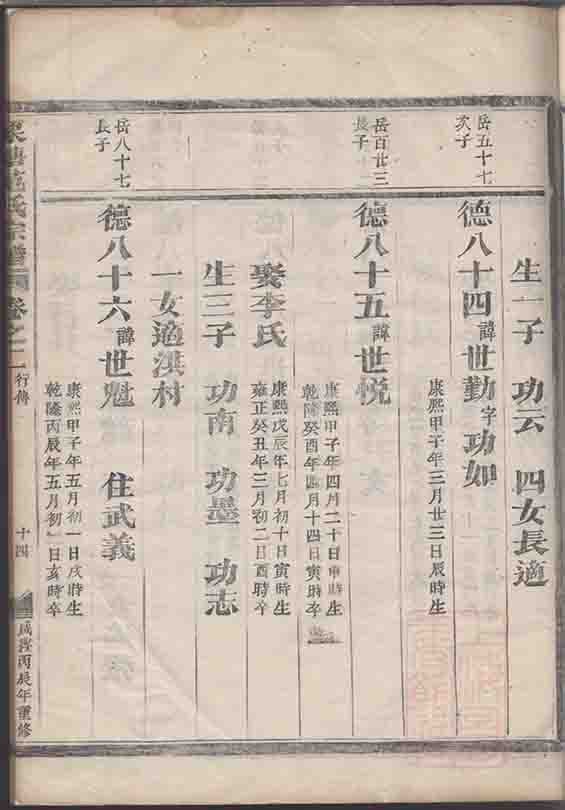 生一子 功云 四女長適
岳五十七
次子
德八十四諱世勤字功如
康熙甲子年三月廿三日辰時生
岳百廿三
長子
德八十五諱世悦
康熙甲子年四月二十日申時生
乾隆癸酉年四月十四日寅時卒
娶李氏
康熙戊辰年七月初十日寅時生
雍正癸丑年三月初二日酉時卒
生三子 功南 功墨 功志
一女適淇村
岳八十七
長子
德八十六諱世魁 住武義
康熙甲子年五月初一日戌時生
乾隆丙辰年五月初一日亥時卒
氏宗譜 卷之二 行傳 十四 咸豐丙辰年重修